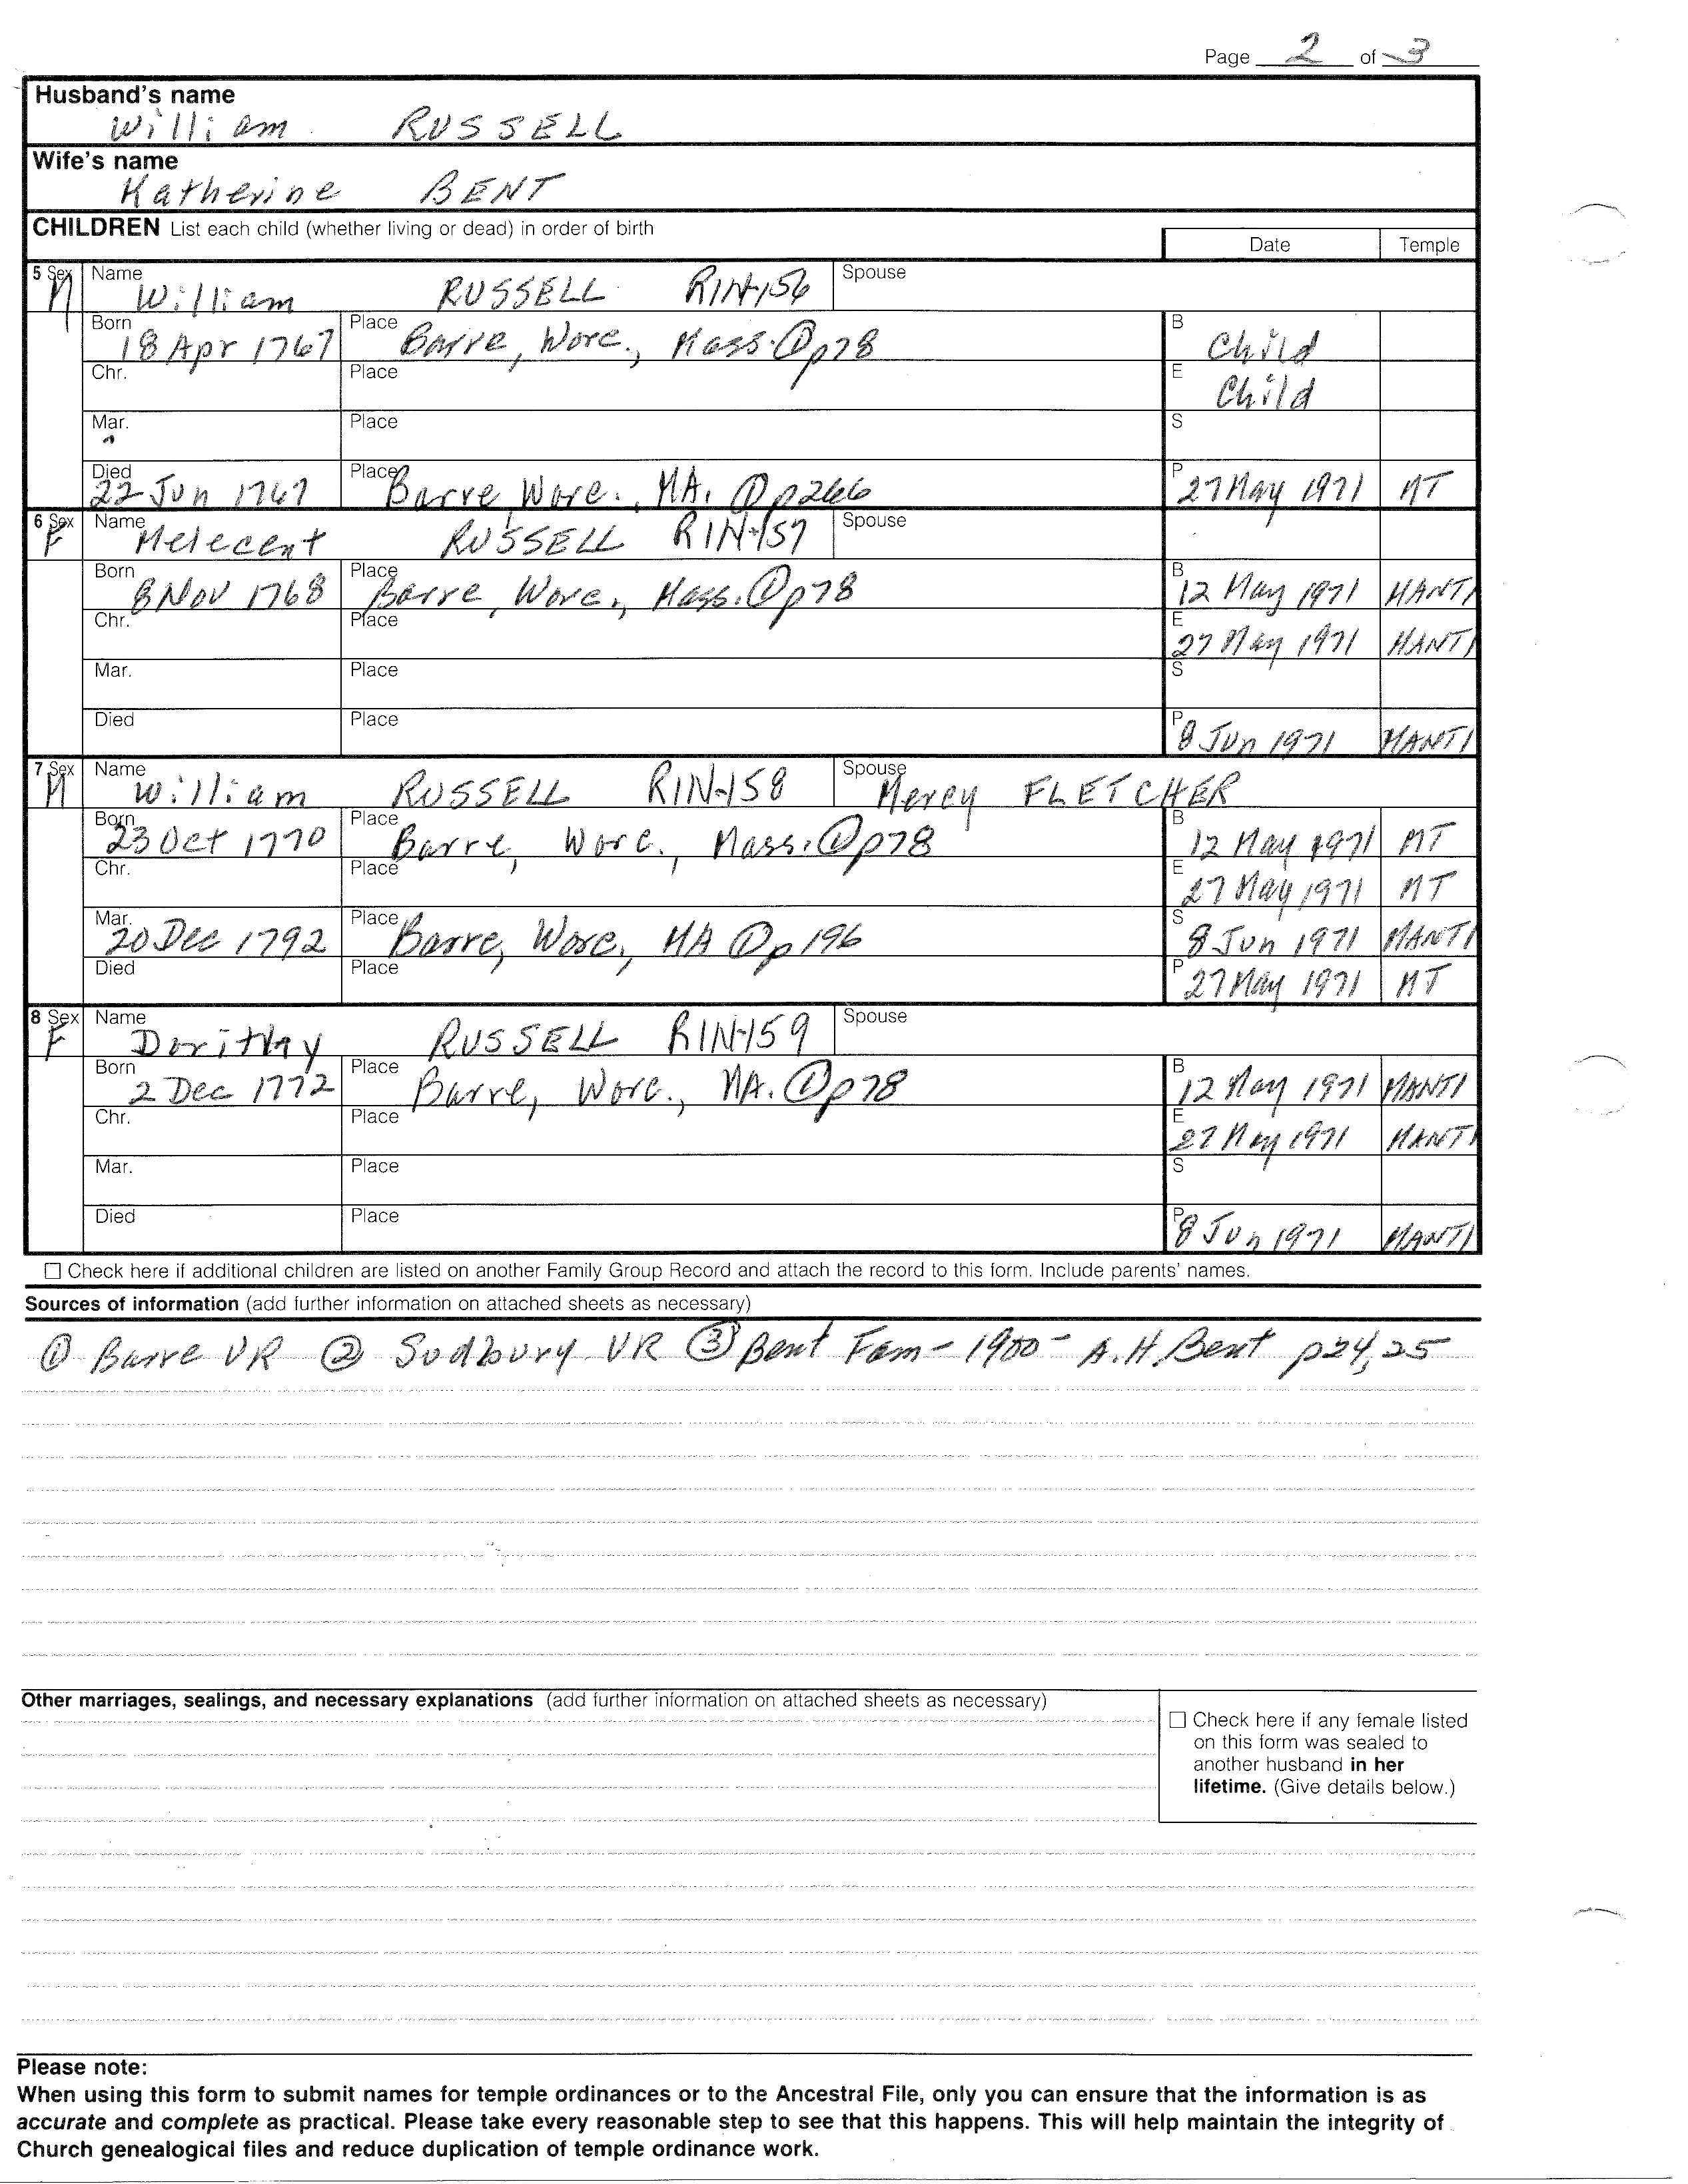 Page 2 of 3
Husband's name
William RUSSELL
Wife's name
Katherine BENT
CHILDREN List each child (whether living or dead) in order of birth
Date Temple
5 Sex Name Spouse
M William RUSSELL RIN-156
Born Place B
18 Apr 1767 Barre, Worc., Mass. ① p78 Child
Chr. Place E
Child
Mar. Place S
Died Place P
22 Jun 1767 Barre, Worc., MA. ① p266 27 May 1971 MT
6 Sex Name Spouse
F Melecent RUSSELL RIN-157
Born Place B
8 Nov 1768 Barre, Worc., Mass. ① p78 12 May 1971 MANTI
Chr. Place E
27 May 1971 MANTI
Mar. Place S
Died Place P
8 Jun 1971 MANTI
7 Sex Name Spouse
M William RUSSELL RIN-158 Mercy FLETCHER
Born Place B
23 Oct 1770 Barre, Worc., Mass. ① p78 12 May 1971 MT
Chr. Place E
27 May 1971 MT
Mar. Place S
20 Dec 1792 Barre, Worc., MA ① p196 8 Jun 1971 MANTI
Died Place P
27 May 1971 MT
8 Sex Name Spouse
F Dorithy RUSSELL RIN-159
Born Place B
2 Dec 1772 Barre, Worc., MA. ① p78 12 May 1971 MANTI
Chr. Place E
27 May 1971 MANTI
Mar. Place S
Died Place P
8 Jun 1971 MANTI
☐ Check here if additional children are listed on another Family Group Record and attach the record to this form. Include parents' names.
Sources of information (add further information on attached sheets as necessary)
① Barre VR ② Sudbury VR ③ Bent Fam - 1900 - A.H. Bent p24, 25
Other marriages, sealings, and necessary explanations (add further information on attached sheets as necessary)
☐ Check here if any female listed
on this form was sealed to
another husband in her
lifetime. (Give details below.)
Please note:
When using this form to submit names for temple ordinances or to the Ancestral File, only you can ensure that the information is as
accurate and complete as practical. Please take every reasonable step to see that this happens. This will help maintain the integrity of
Church genealogical files and reduce duplication of temple ordinance work.